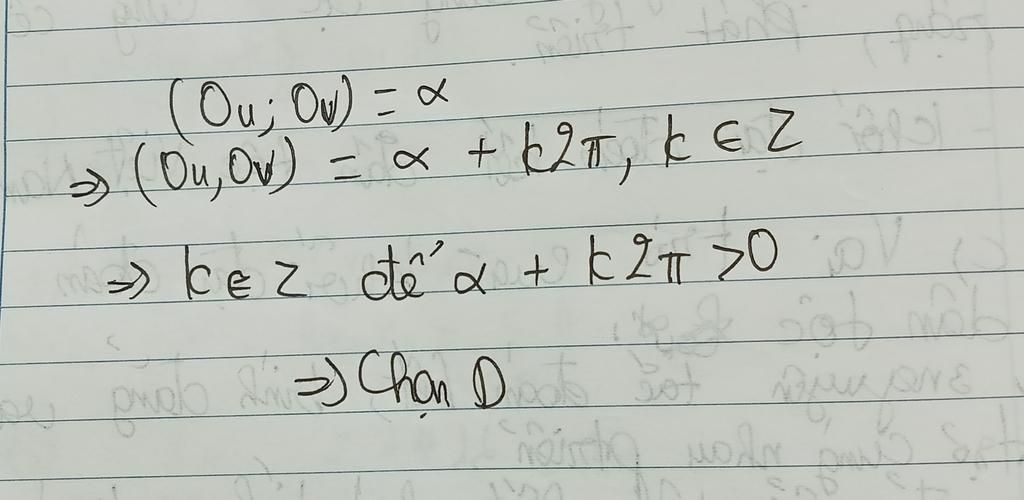 (Ou; Ov) = α
⇒ (Ou, Ov) = α + k2π, k ∈ Z
⇒ k ∈ Z để α + k2π > 0
⇒ Chọn D